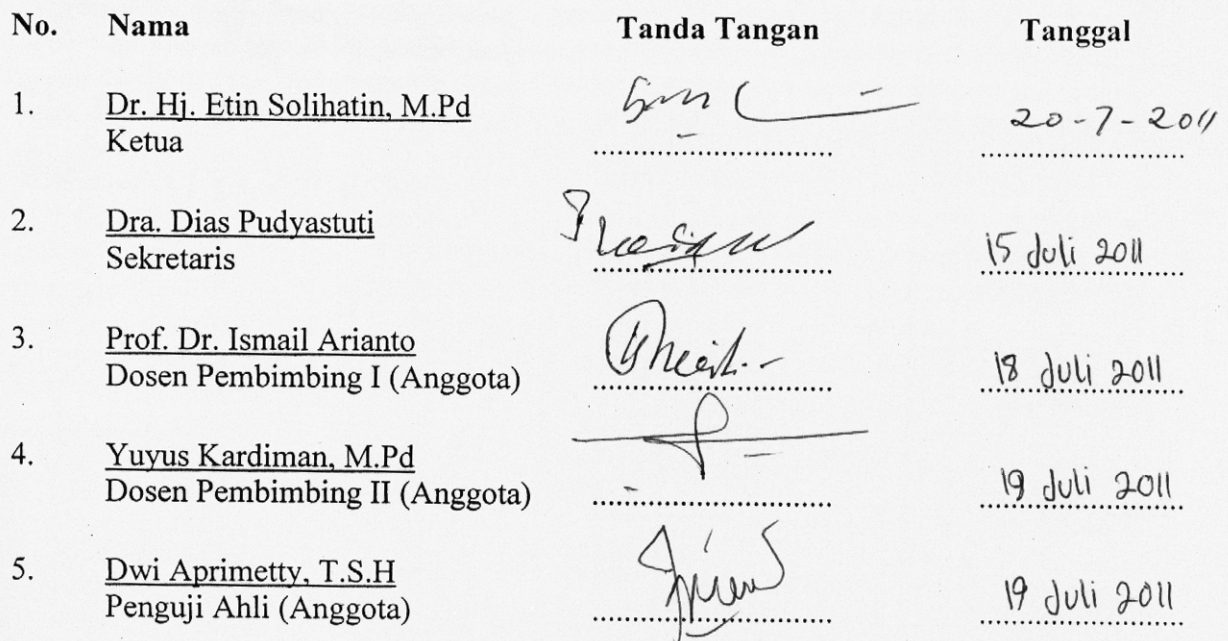 No. Nama Tanda Tangan Tanggal
1. Dr. Hj. Etin Solihatin, M.Pd 20-7-2011
Ketua ........................
2. Dra. Dias Pudyastuti 15 Juli 2011
Sekretaris
3. Prof. Dr. Ismail Arianto
Dosen Pembimbing I (Anggota) 18 Juli 2011
4. Yuyus Kardiman, M.Pd
Dosen Pembimbing II (Anggota) 19 Juli 2011
5. Dwi Aprimetty, T.S.H
Penguji Ahli (Anggota) 19 Juli 2011